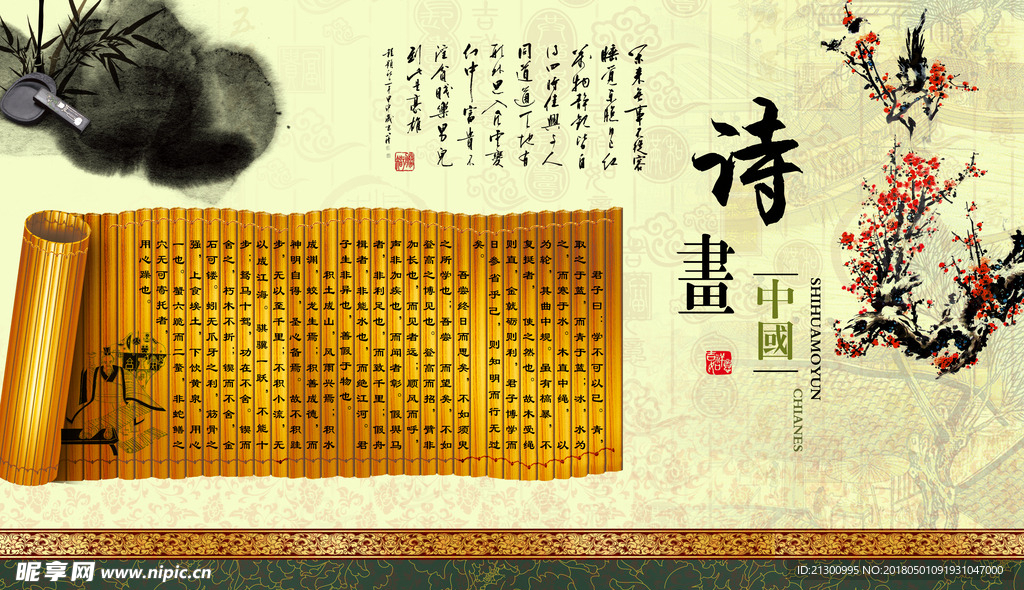 閒來無事不從容
睡覺東窗日已紅
萬物靜觀皆自
得四時佳興與人
同道通天地有
形外思入風雲變
態中富貴不
淫貧賤樂男兒
到此是豪雄
诗
畫
中國
SHIHUAMOYUN
CHIANES
君子曰:学不可以已。青,
取之于蓝,而青于蓝;冰,水为
之,而寒于水。木直中绳, 以
为轮,其曲中规。虽有槁暴,不
复挺者, 使之然也。故木受绳
则直,金就砺则利,君子博学而
日参省乎己,则知明而行无过
矣。
吾尝终日而思矣,不如须臾
之所学也;吾尝 而望矣,不如
登高之博见也。登高而招,臂非
加长也,而见者远;顺风而呼,
声非加疾也,而闻者彰。假舆马
者,非利足也,而致千里;假舟
楫者,非能水也,而绝江河。君
子生非异也,善假于物也。
积土成山,风雨兴焉;积水
成渊,蛟龙生焉;积善成德,而
神明自得,圣心备焉。故不积跬
步,无以至千里;不积小流,无
以成江海。骐骥一跃,不能十
步;驽马十驾,功在不舍。锲而
舍之,朽木不折;锲而不舍,金
石可镂。蚓无爪牙之利,筋骨之
强,上食埃土,下饮黄泉,用心
一也。蟹六跪而二螯,非蛇鳝之
穴无可寄托者,
用心躁也。
昵享网 www.nipic.cn
ID:21300995 NO:20180501091931047000